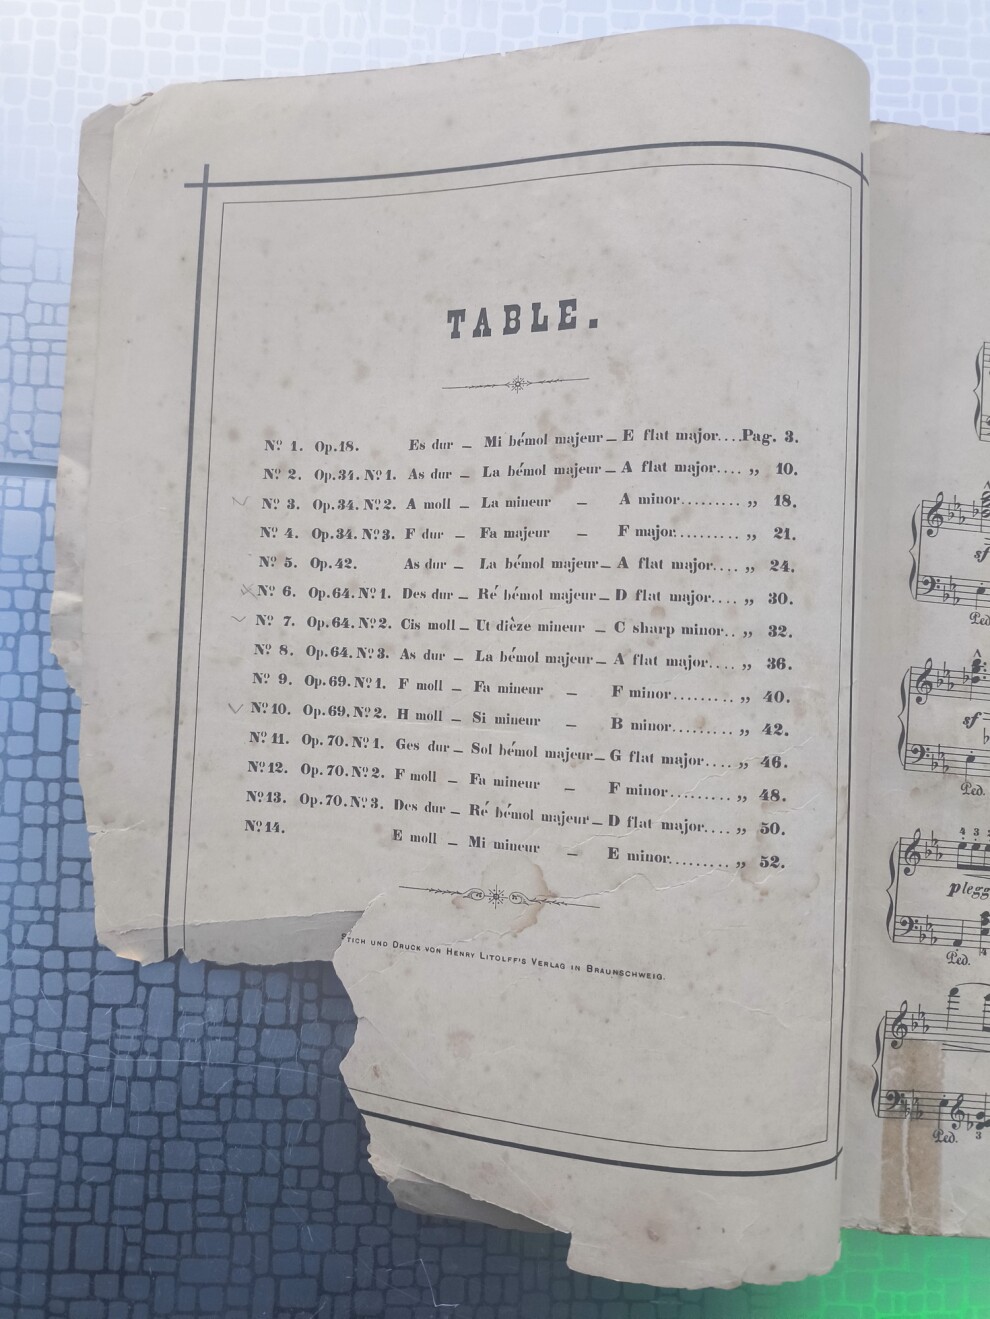 TABLE.
No 1. Op.18. Es dur – Mi bémol majeur – E flat major....Pag. 3.
No 2. Op.34. No 1. As dur – La bémol majeur – A flat major.... „ 10.
No 3. Op.34. No 2. A moll – La mineur – A minor......... „ 18.
No 4. Op.34. No 3. F dur – Fa majeur – F major.......... „ 21.
No 5. Op.42. As dur – La bémol majeur – A flat major.... „ 24.
No 6. Op.64. No 1. Des dur – Ré bémol majeur – D flat major.... „ 30.
No 7. Op.64. No 2. Cis moll – Ut dièze mineur – C sharp minor.. „ 32.
No 8. Op.64. No 3. As dur – La bémol majeur – A flat major.... „ 36.
No 9. Op.69. No 1. F moll – Fa mineur – F minor......... „ 40.
No 10. Op.69. No 2. H moll – Si mineur – B minor......... „ 42.
No 11. Op.70. No 1. Ges dur – Sol bémol majeur – G flat major.... „ 46.
No 12. Op.70. No 2. F moll – Fa mineur – F minor......... „ 48.
No 13. Op.70. No 3. Des dur – Ré bémol majeur – D flat major.... „ 50.
No 14. E moll – Mi mineur – E minor......... „ 52.
STICH UND DRUCK VON HENRY LITOLFF'S VERLAG IN BRAUNSCHWEIG.
sf
Ped.
sf
Ped.
4 3 2
p legg
Ped.
Ped.
3